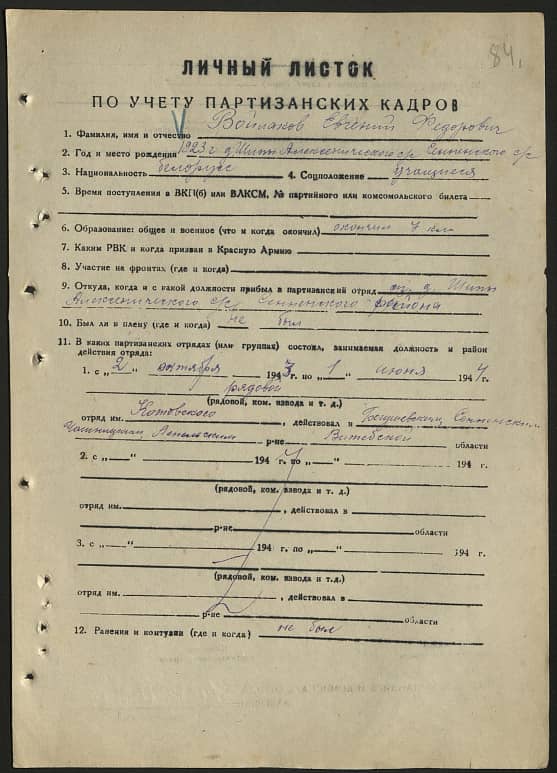 84.
ЛИЧНЫЙ ЛИСТОК
ПО УЧЕТУ ПАРТИЗАНСКИХ КАДРОВ
1. Фамилия, имя и отчество Войлаков Евгений Федорович
2. Год и место рождения 1923 г д. Шипы Алексеничского с/с Сенненского с/с
3. Национальность белорус 4. Соцположение учащиеся
5. Время поступления в ВКП(б) или ВЛКСМ, № партийного или комсомольского билета
6. Образование: общее и военное (что и когда окончил) окончил 7 кл.
7. Каким РВК и когда призван в Красную Армию
8. Участие на фронтах (где и когда)
9. Откуда, когда и с какой должности прибыл в партизанский отряд из д. Шипы
Алексеничского с/с Сенненского района
10. Был ли в плену (где и когда) не был
11. В каких партизанских отрядах (или группах) состоял, занимаемая должность и район
действия отряда:
1. с „2“ октября 1943 г. по „1“ июня 1944 г.
рядовой
(рядовой, ком. взвода и т. д.)
отряд им. Котовского, действовал в Сенненским
Чашницким Лепельским р-не Витебской области
2. с „—“ 194 г. по „—“ 194 г.
(рядовой, ком. взвода и т. д.)
отряд им. , действовал в
р-не области
3. с „—“ 194 г. по „—“ 194 г.
(рядовой, ком. взвода и т.д.)
отряд им. , действовал в
р-не области
12. Ранения и контузии (где и когда) не был